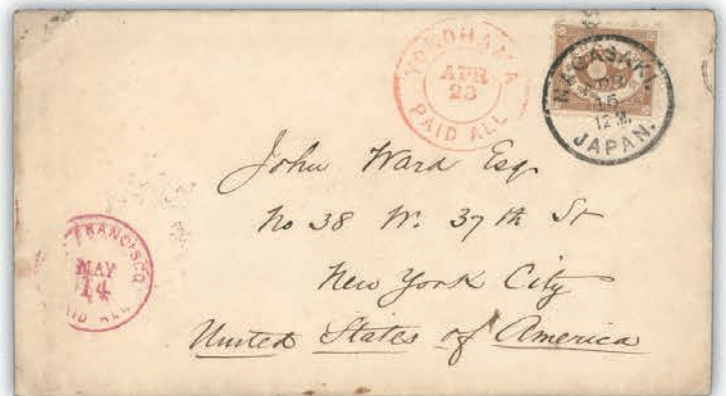 YOKOHAMA
APR
23
PAID ALL
NAGASAKI.
15
12 M.
JAPAN.
John Ward Esq
No 38 W. 37th St
New York City
United States of America
FRANCISCO
MAY
14
PAID ALL